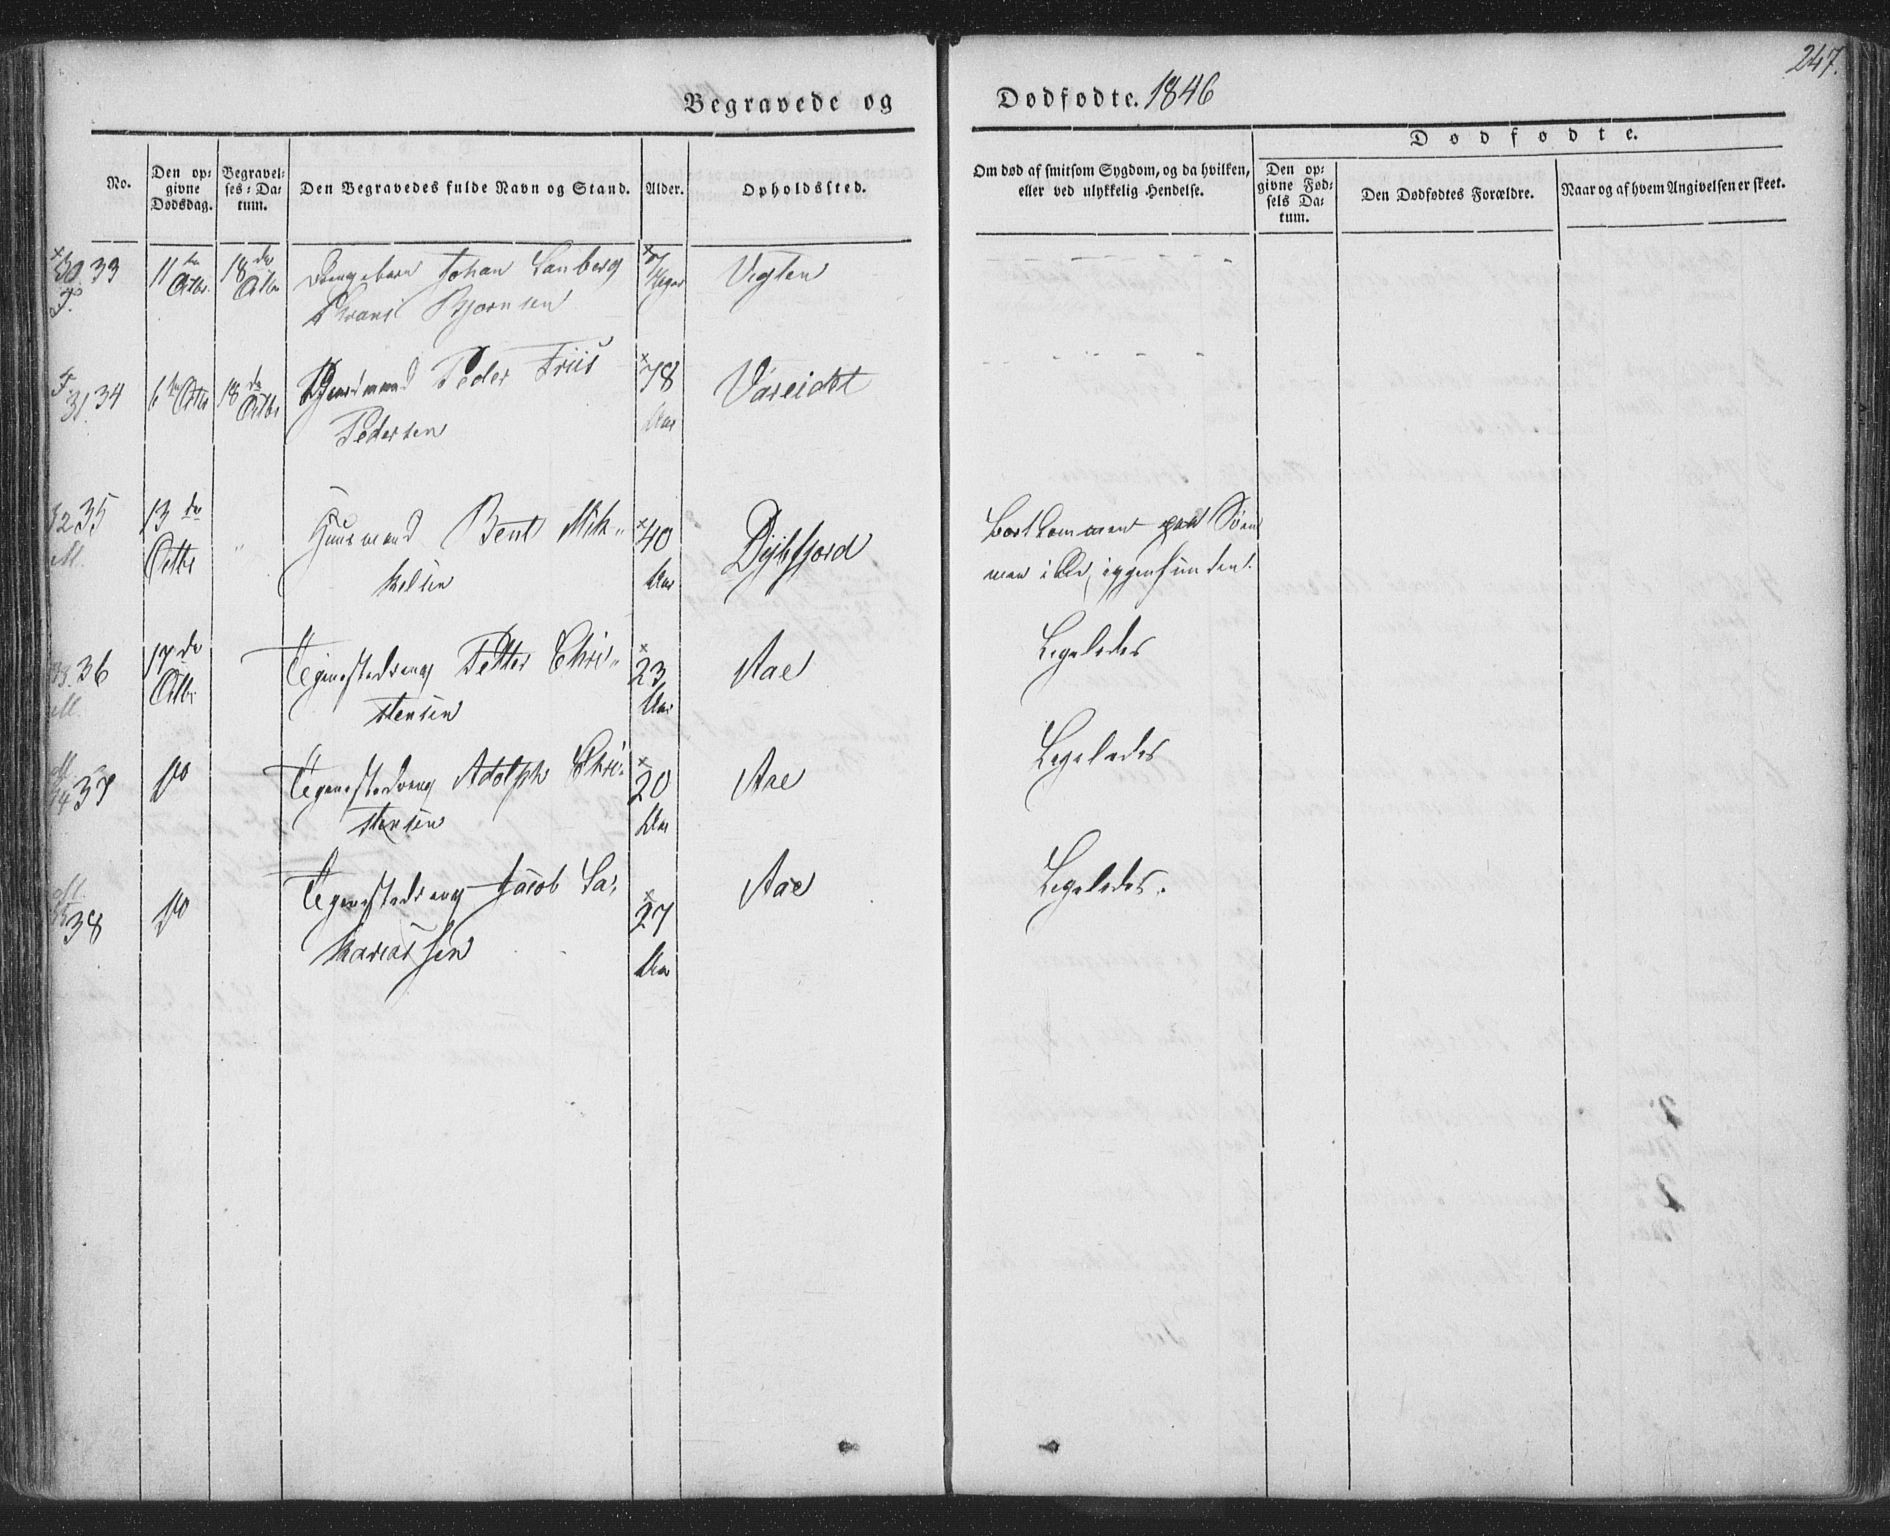 247.
Begravede og Dødfødte. 1846
Dødfødte.
No.
Den opgivne Dødsdag.
Begravelses-Datum.
Den Begravedes fulde Navn og Stand.
Alder.
Opholdssted.
Om død af smitsom Sygdom, og da hvilken, eller ved ulykkelig Hendelse.
Den opgivne Fødsels Datum.
Den Dødfødtes Forældre.
Naar og af hvem Angivelsen er skeet.
30. 33 11te Octbr. 18de Octbr Drengebarn Johan Lanberg 7 Uger Vigten
Bjørnsen
31. 34 6te Octbr 18de Octbr Peder Friis 78 Aar Vareidet
Pedersen
32 35 13de Octbr " Huusmand Bent Mik- 40 Aar Dybfjord Bortkommen paa Søen
kelsen men i
M.
33. 36 17de Octbr Petter Chri- 23 Aar Aae Ligeledes
stensen
M.
34 37 Do Adolph Chri- 20 Aar Aae Ligeledes
stensen
35 38 Do Jacob Sa- 27 Aar Aae Ligeledes.
kariassen